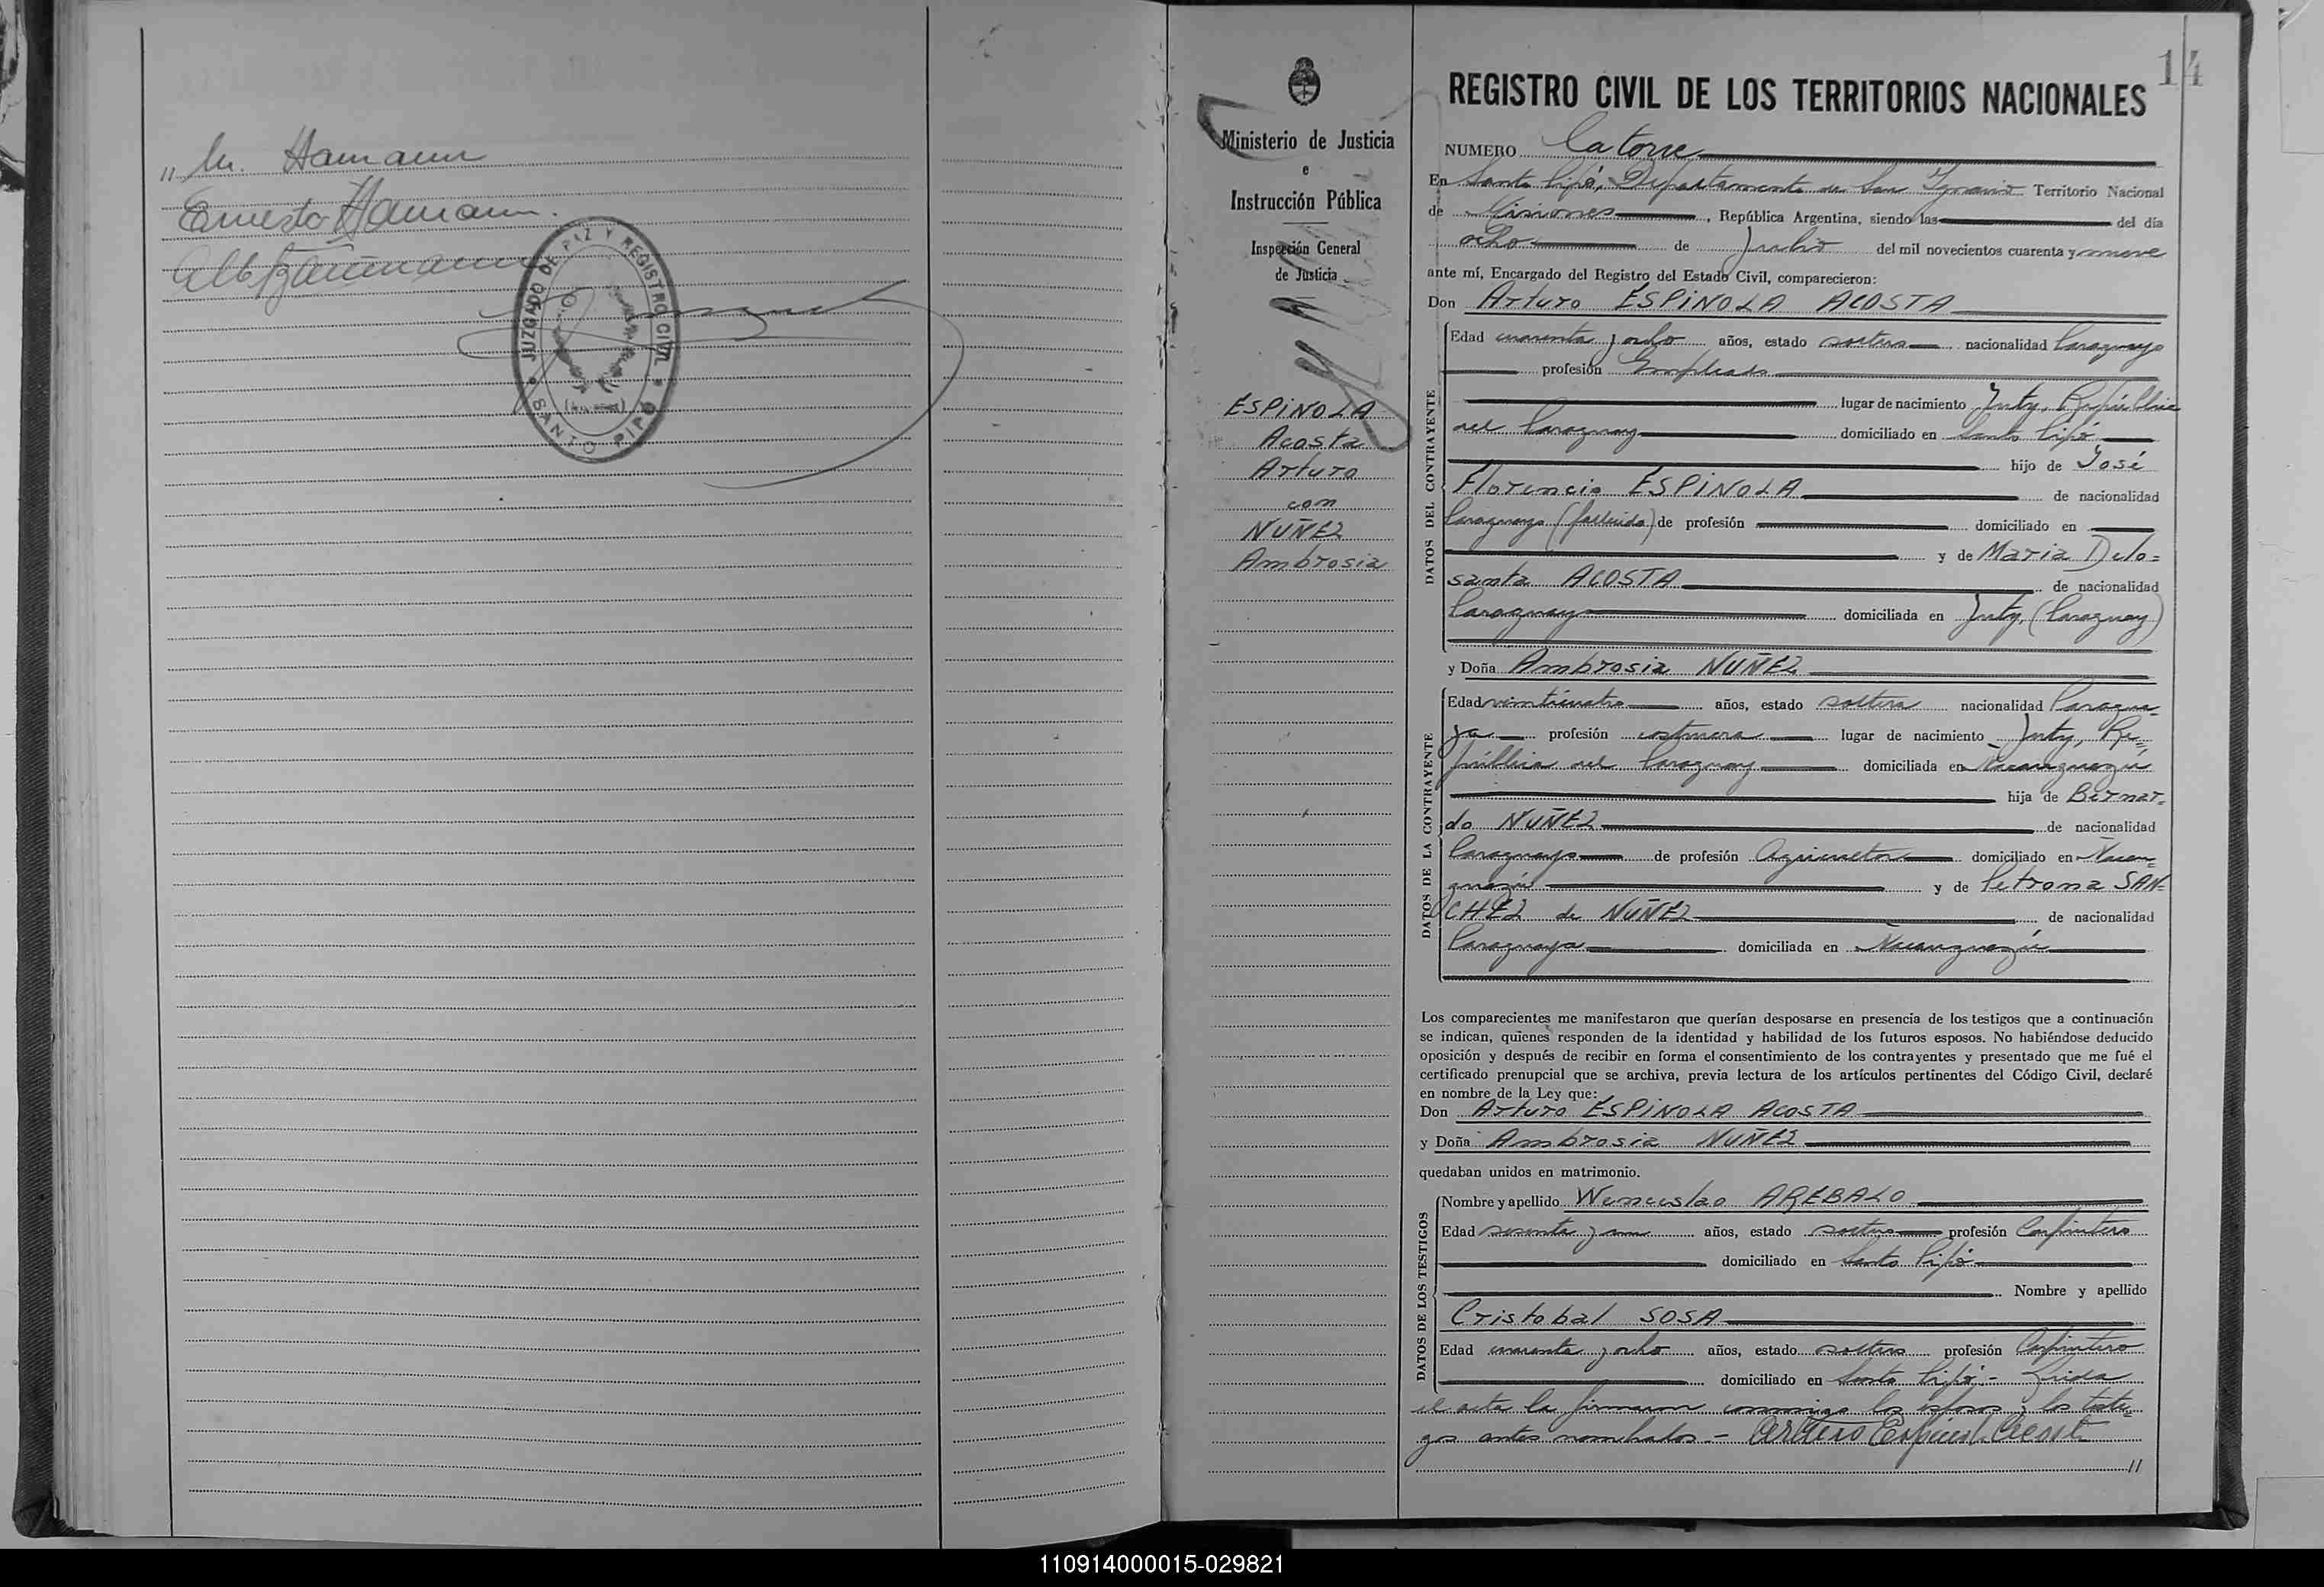 " M. Hamann
Ernesto Hamann.
Alb Baumann
JUZGADO DE PAZ Y REGISTRO CIVIL
SANTO PIPO
14
Ministerio de Justicia
e
Instrucción Pública
Inspección General
de Justicia
ESPINOLA
Acosta
Arturo
con
NUÑEZ
Ambrosia
REGISTRO CIVIL DE LOS TERRITORIOS NACIONALES
NUMERO Catorce
En Santo Pipó, Departamento de San Ignacio Territorio Nacional
de Misiones, República Argentina, siendo las del día
ocho de Julio del mil novecientos cuarenta y nueve
ante mí, Encargado del Registro del Estado Civil, comparecieron:
Don Arturo ESPINOLA ACOSTA
DATOS DEL CONTRAYENTE
Edad cuarenta y ocho años, estado soltero nacionalidad Paraguayo
profesión Empleado
lugar de nacimiento Yuty, República
del Paraguay domiciliado en Santo Pipó
hijo de José
Florencio ESPINOLA de nacionalidad
Paraguayo (fallecido) de profesión domiciliado en
y de Maria Delo=
santa ACOSTA de nacionalidad
Paraguaya domiciliada en Yuty, (Paraguay)
y Doña Ambrosia NUÑEZ
DATOS DE LA CONTRAYENTE
Edad veinticuatro años, estado soltera nacionalidad Paragua=
ya profesión costurera lugar de nacimiento Yuty, Re=
pública del Paraguay domiciliada en Ñacanguazú
hija de Bernar=
do NUÑEZ de nacionalidad
Paraguayo de profesión Agricultor domiciliado en Ñacan=
guazú y de Petrona SAN=
CHEZ de NUÑEZ de nacionalidad
Paraguaya domiciliada en Ñacanguazú
Los comparecientes me manifestaron que querían desposarse en presencia de los testigos que a continuación
se indican, quienes responden de la identidad y habilidad de los futuros esposos. No habiéndose deducido
oposición y después de recibir en forma el consentimiento de los contrayentes y presentado que me fué el
certificado prenupcial que se archiva, previa lectura de los artículos pertinentes del Código Civil, declaré
en nombre de la Ley que:
Don Arturo ESPINOLA ACOSTA
y Doña Ambrosia NUÑEZ
quedaban unidos en matrimonio.
DATOS DE LOS TESTIGOS
Nombre y apellido Wenceslao AREBALO
Edad sesenta y un años, estado soltero profesión Carpintero
domiciliado en Santo Pipó
Nombre y apellido
Cristobal SOSA
Edad cuarenta y ocho años, estado soltero profesión Carpintero
domiciliado en Santo Pipó.- Leida
el acta la firmaron conmigo los esposos y los testi=
gos antes nombrados.- Arturo Espinola Acosta
"
110914000015-029821